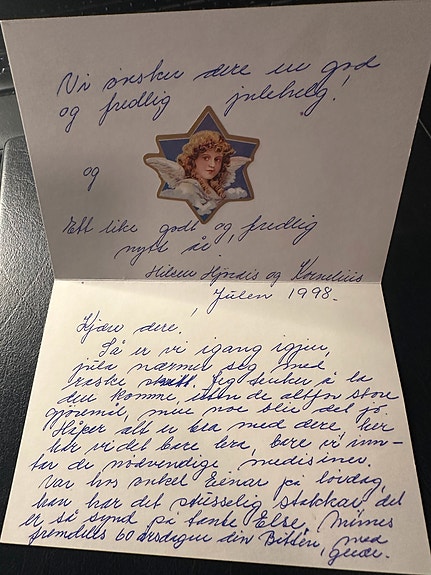 Vi ønsker dere en god
og fredlig julehelg!
og
Ett like godt og fredlig
nytt år!
Hilsen Hjørdis og Kornelius
Julen 1998.
Kjære dere,
Så er vi igang igjen,
jula nærmer seg med
raske skritt. Jeg tenker å la
den komme, uten de altfor store
gjøremål, men noe blir det jo.
Håper alt er bra med dere, her
har vi det bare bra, bare vi inn-
tar de nødvendige medisiner.
Var hos onkel Einar på lørdag,
han har det stusselig stakkar, det
er så synd på tante Else, Minnes
fremdeles 60 årsdagen din Bitten, med
glede.